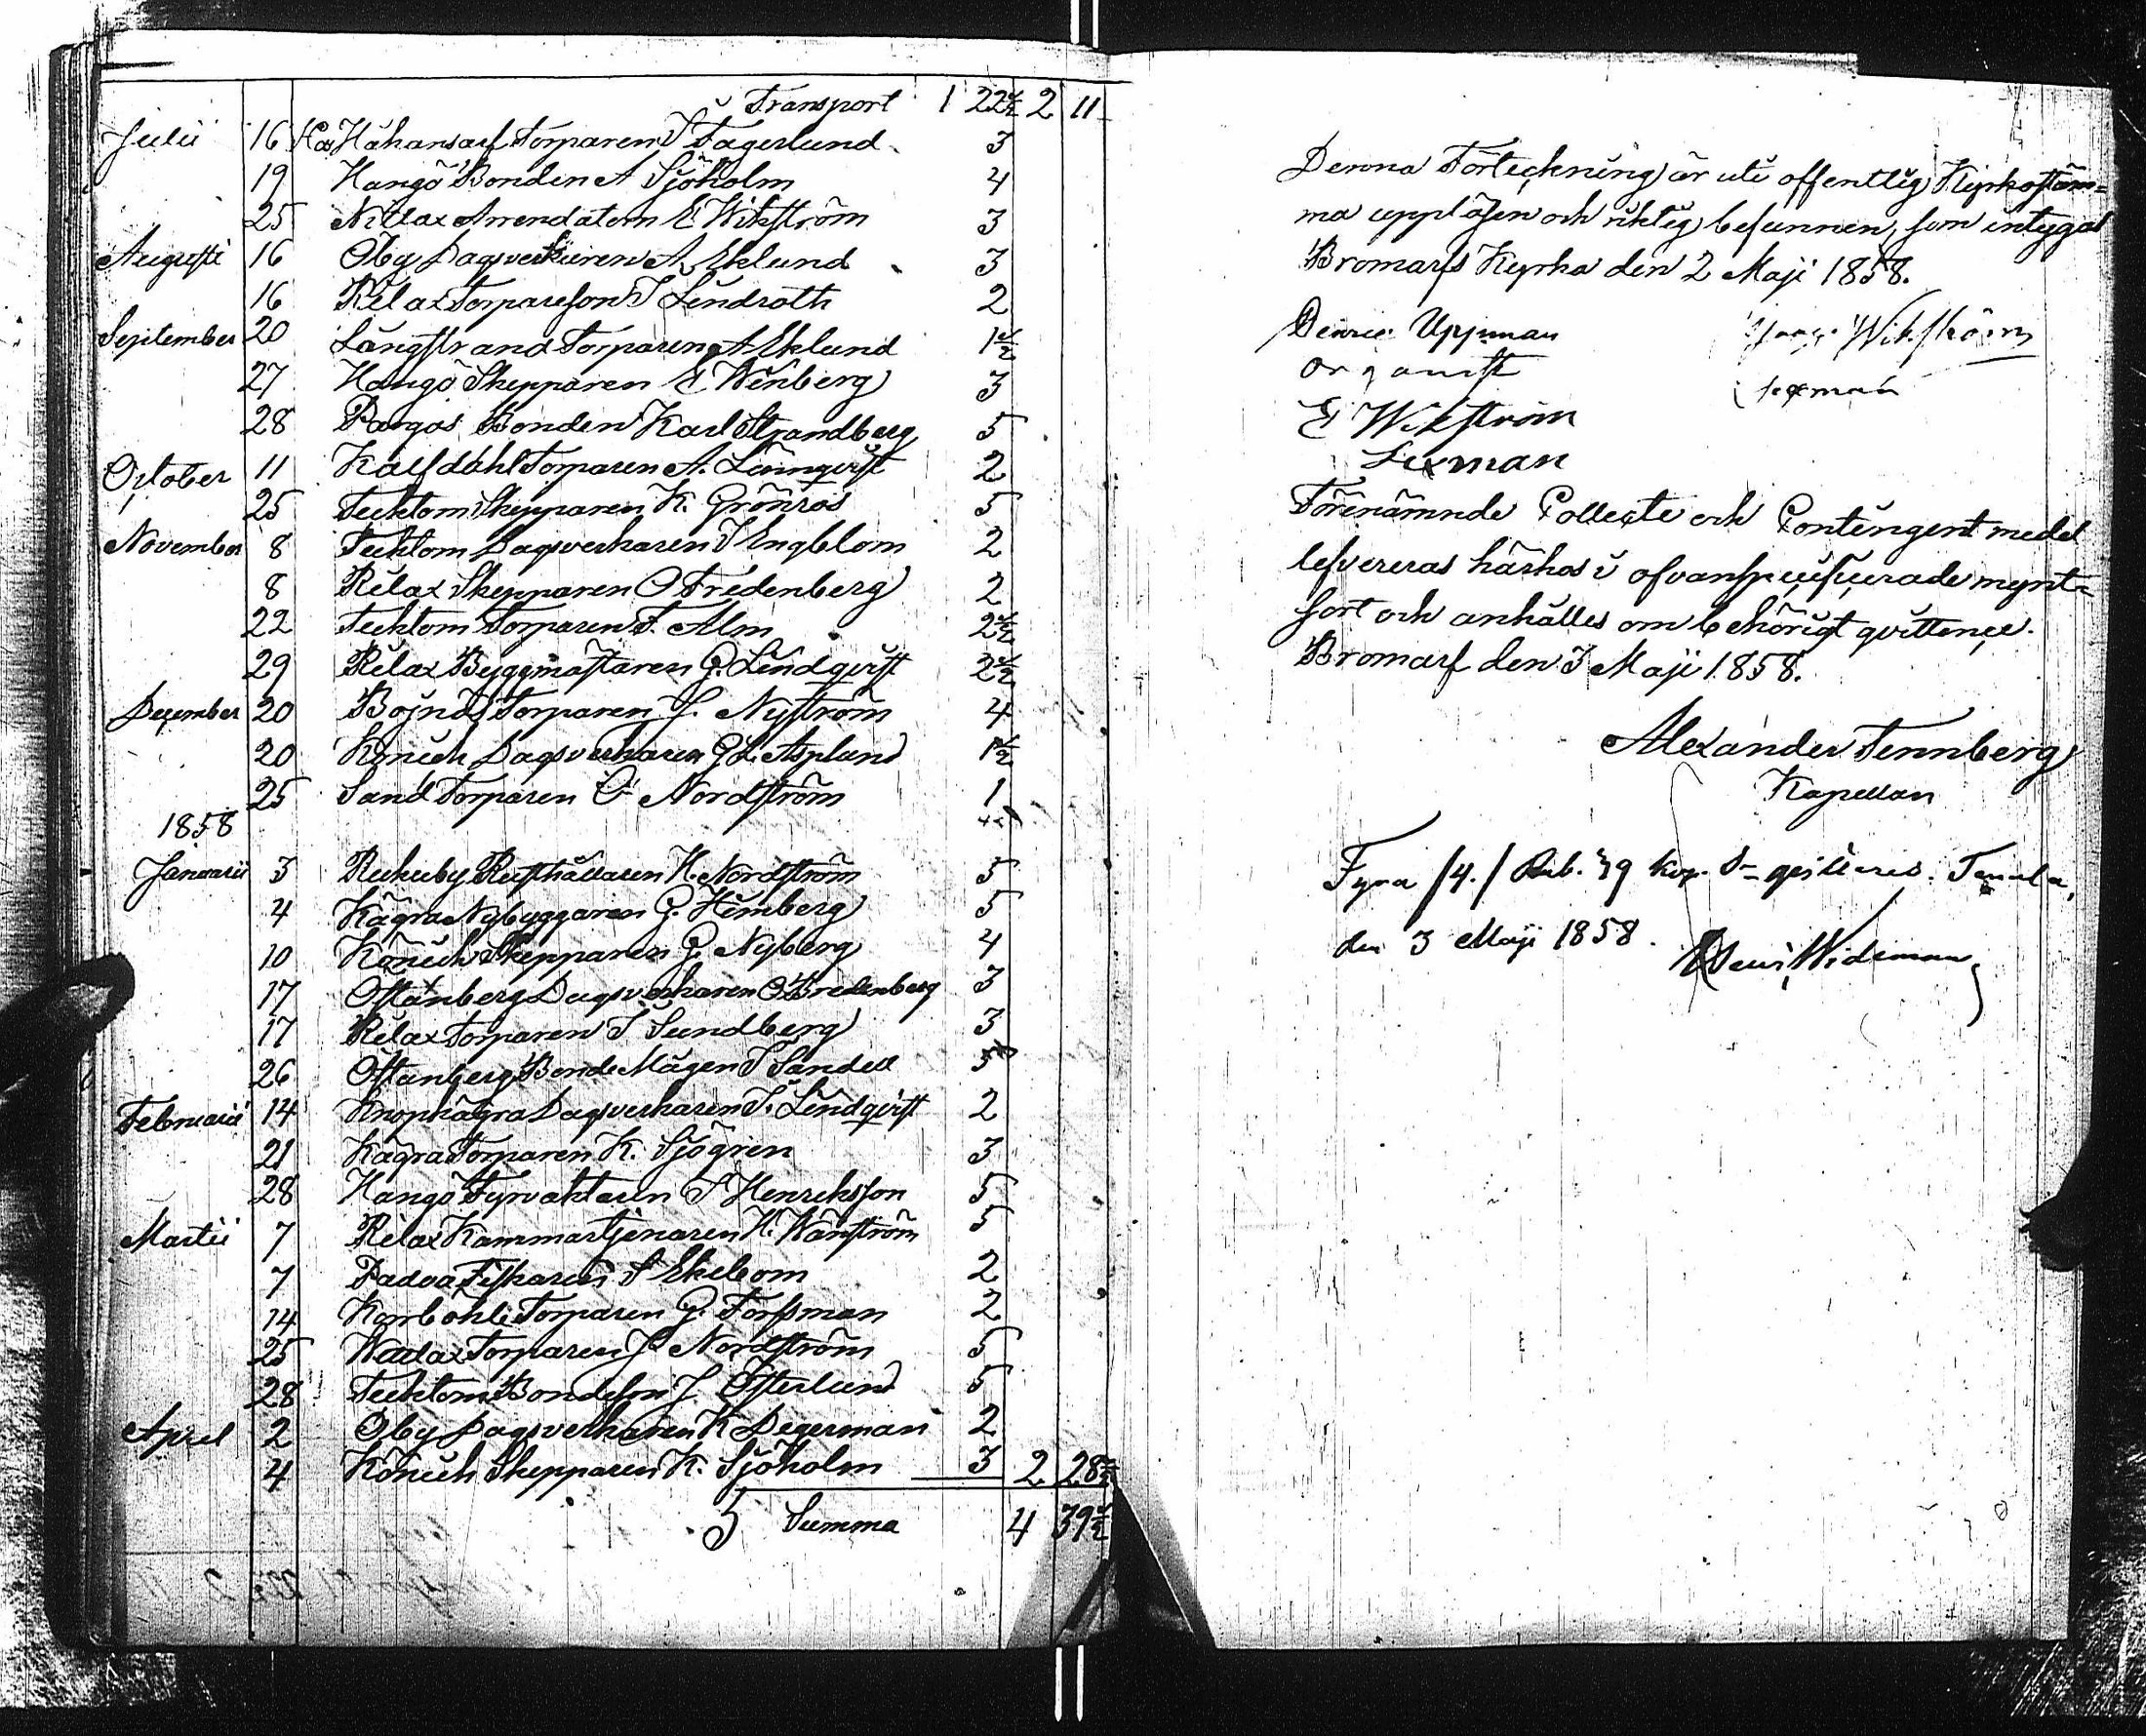 Transport 1 22½ 2 11
Julii 16 Hos Håkansarf Torparen J Fagerlund 3
19 Hangö Bonden A Sjöholm 4
25 Nitlax Arrendatorn E Wikström 3
Augusti 16 Öby Dagsverkaren A. Eklund 3
16 Rilax Torpareson J Lindroth 2
September 20 Långstrand Torparen A Eklund 1½
27 Hangö Skepparen E Wenberg 3
28 Pargos Bonden Karl Strandberg 5
October 11 Kalfdahl Torparen A. Lönnqvist 2
25 Tecktom Skepparen K. Grönros 5
November 8 Tecktom Dagsverkaren J Engblom 2
8 Rilax Skepparen O Fredenberg 2
22 Tecktom Torparen F. Alm 2½
29 Rilax Byggmästaren G. Lindqvist 2½
December 20 Bojnäs Torparen J. Nyström 4
20 Känich Dagsverkaren G L. Asplund 1½
25 Sand Torparen O Nordström 1
1858
Januarii 3 Rusthållaren H. Nordström 5
4 Kågra Nybyggaren G. Hemberg 5
10 Könich Skepparen G. Nyberg 4
17 Östanberg Dagsverkaren O Bredenberg 3
17 Rilax Torparen J Sundberg 3
26 Östanberg Bonde Mågen J Sandell 5
Februarii 14 Knopkägra Dagsverkaren J. Lindqvist 2
21 Kägra Torparen K. Sjögren 3
28 Hangö Fyrvaktaren J Henriksson 5
Martii 7 Rilax Kammartjenaren H. Wänström 5
7 Padva Fiskaren J Ekebom 2
14 Korrbohle Torparen G. Forssman 2
25 Torparen J Nordström 5
28 Tecktom Bondeson J. Österlund 5
April 2 Öby Dagsverkaren K Degerman 2
4 Könich Skepparen K. Sjöholm 3 2 28½
Summa 4 39½
Denna Förteckning är uti offentlig Kyrkostäm=
ma uppläsen och riktig befunnen, som intygas
Bromarfs Kyrka den 2 Maji 1858.
Uppman Wikström
Organist Sexman
E Wikström
Sexman
Förenämnde Collecte och Contingent medel
lefvereras härhos i ofvanspecificerade mynt=
sort och anhålles om behörigt qvittence.
Bromarf den 3 Maji 1858.
Alexander Tennberg
Kapellan
Fyra /4./ Rub. 39 kop. S= qvitteras. Tenala,
den 3 Maji 1858. Wideman